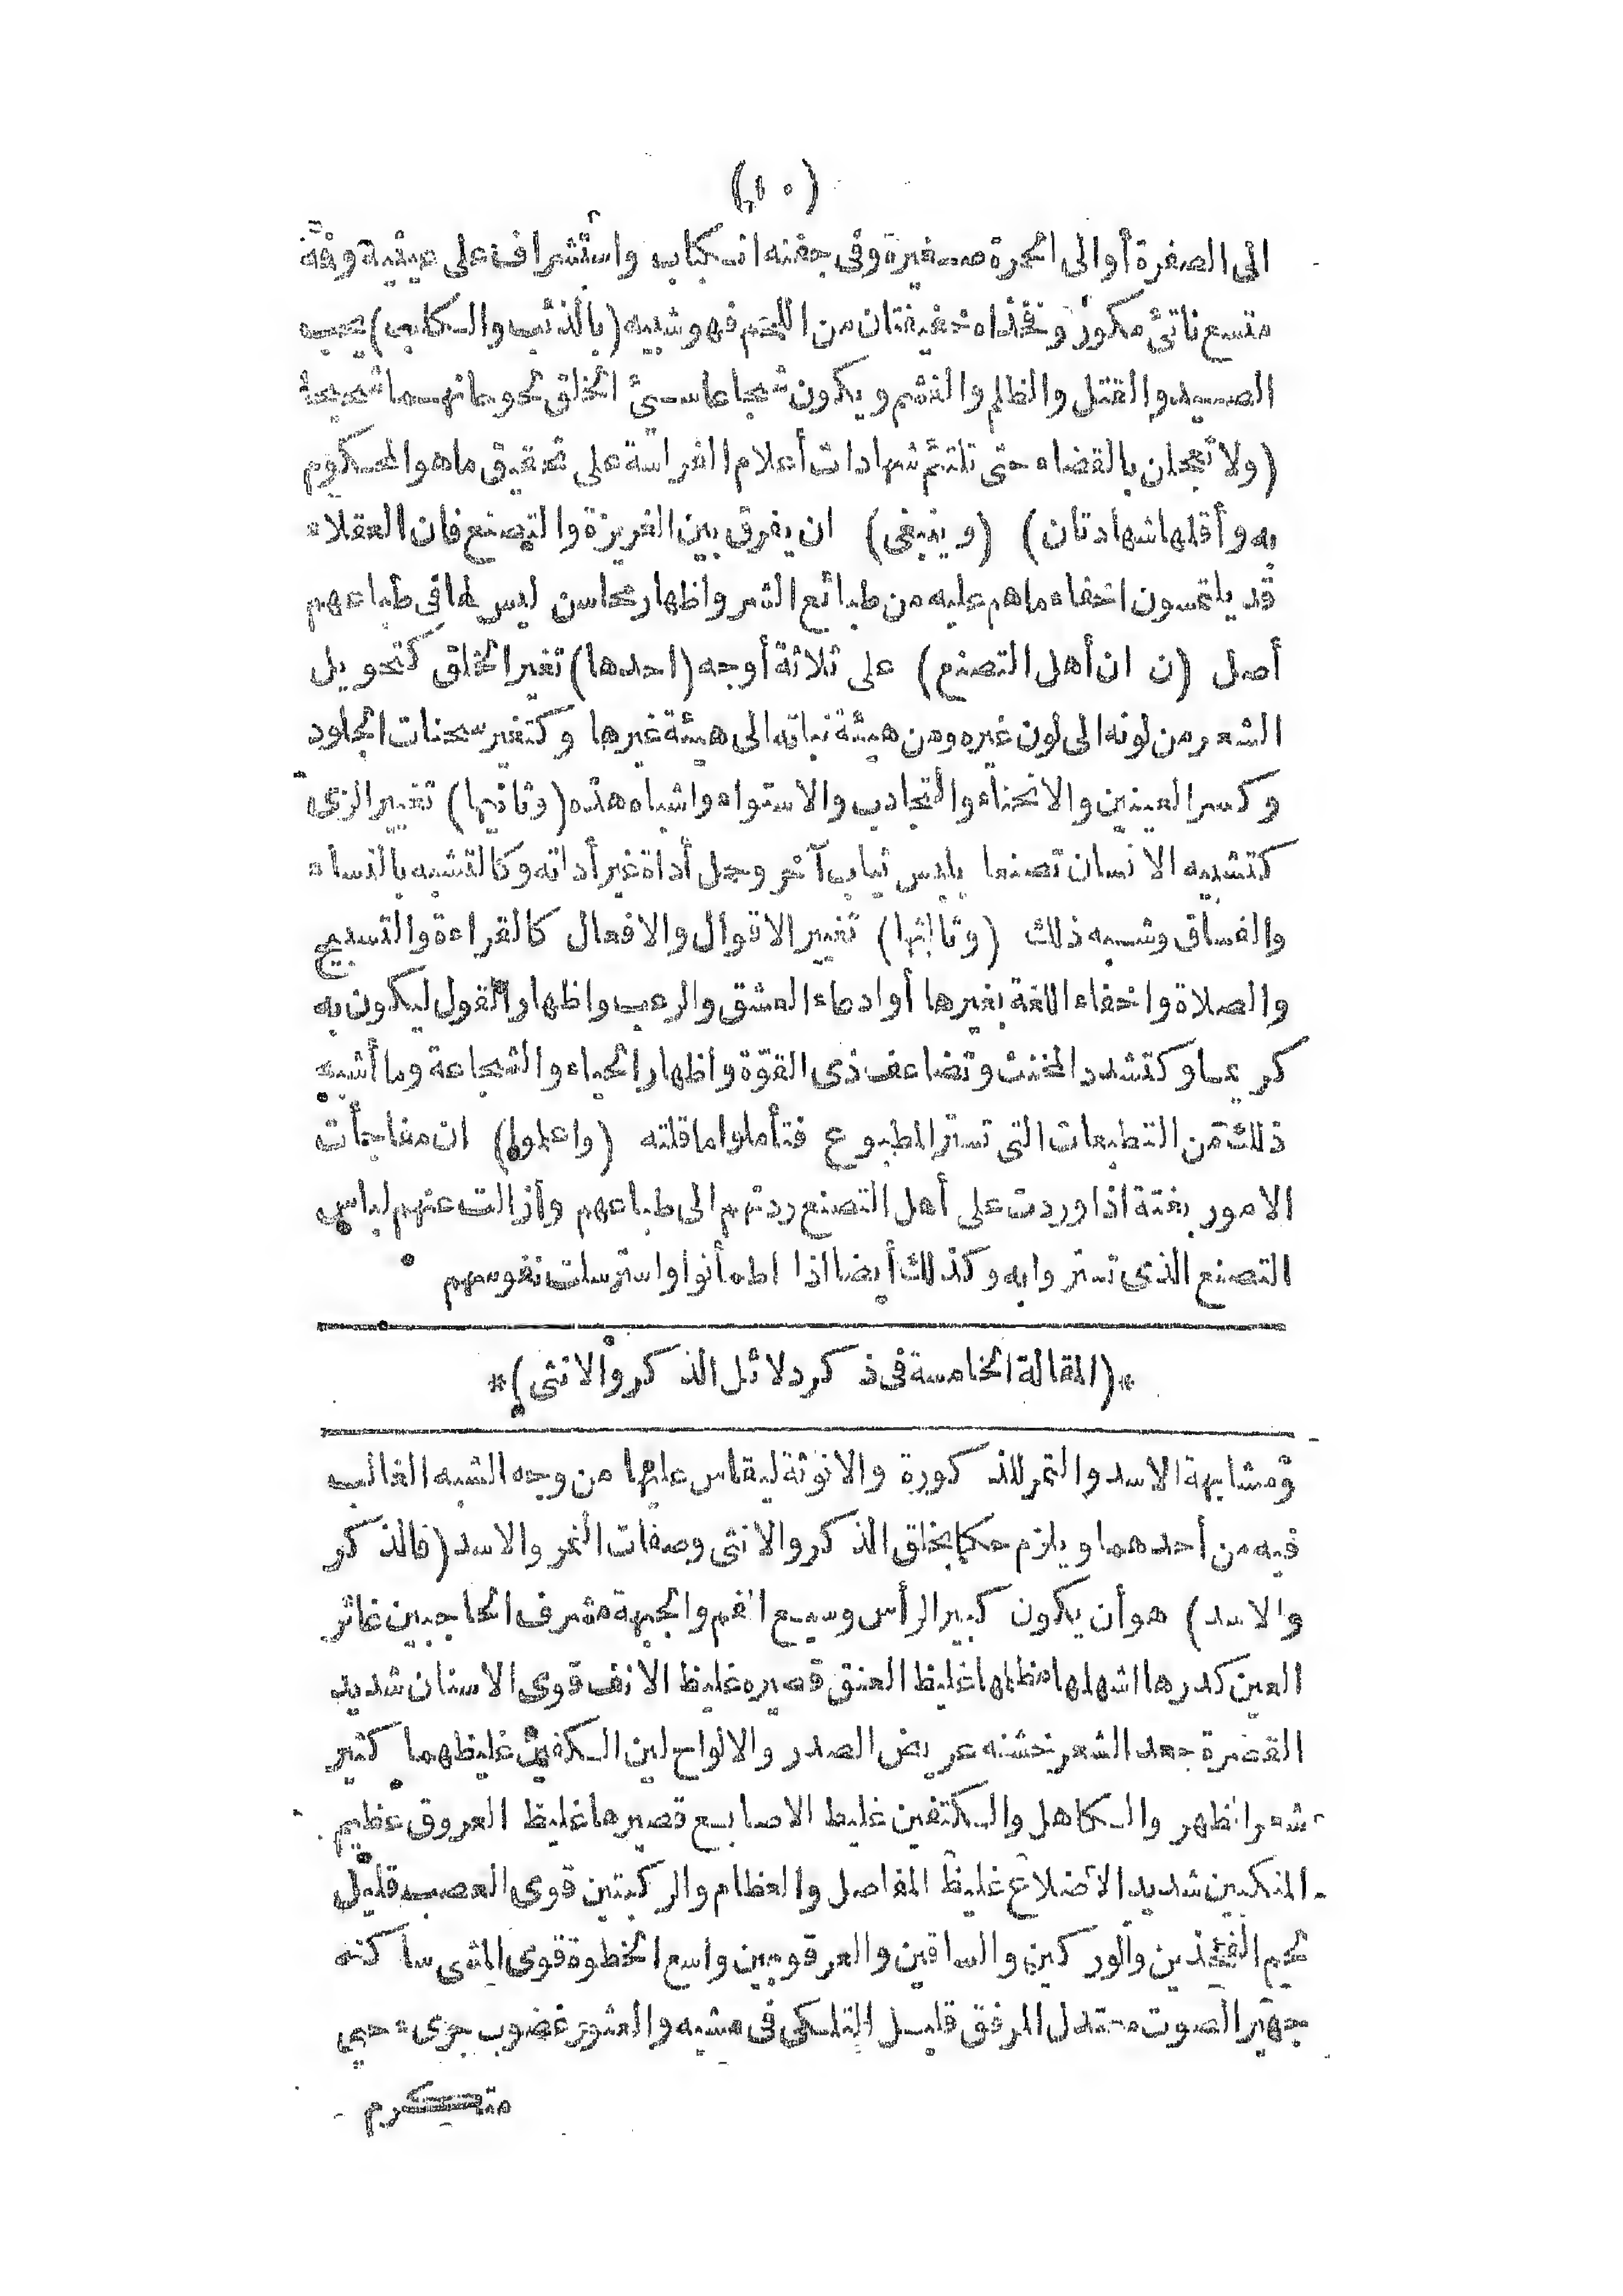 (١٠)
الى الصفرة أو الى الحمرة صغيرة وفى جفنه انكباب واستشراف على عينيه وفمه
متسع ناتئ مكور وفخذاه خفيفتان من اللحم فهو شبيه (بالذئب والكلب) يحب
الصيد والقتل والظلم والغشم ويكون شجاعا سيئ الخلق لحوحا نهما شحيحا
(ولا تعجلن بالقضاء حتى تلتئم شهادات أعلام الفراسة على تحقيق ما هو المحكوم
به وأقلها شهادتان) (وينبغى) ان يفرق بين الغريزة والتصنع فان العقلاء
قد يلتمسون اخفاء ما هم عليه من طبائع الشر واظهار محاسن ليس لها فى طباعهم
أصل (ن ان أهل التصنع) على ثلاثة أوجه (احدها) تغير الخلق كتحويل
الشعر من لونه الى لون غيره ومن هيئة نباته الى هيئة غيرها وكتغير سحنات الجلود
وكسر العينين والانحناء والتحادب والاستواء واشباه هذه (وثانيها) تغيير الزى
كتشبيه الانسان تصنعا بلبس ثياب آخر وحمل أداة غير أداته وكالتشبه بالنساء
والفساق وشبه ذلك (وثالثها) تغيير الاقوال والافعال كالقراءة والتسبيح
والصلاة واخفاء اللغة بغيرها أو ادعاء العشق والرعب واظهار القول ليكون به
كريما وكتشدد المخنث وتضاعف ذى القوّة واظهار الحياء والشجاعة وما أشبه
ذلك من التطبعات التى تستر المطبوع فتأملوا ما قلته (واعلموا) ان مفاجآت
الامور بغتة اذا وردت على أهل التصنع ردتهم الى طباعهم وأزالت عنهم لباس
التصنع الذى تستروا به وكذلك أيضا اذا اطمأنوا واسترسلت نفوسهم
*(المقالة الخامسة فى ذكر دلائل الذكر والانثى)*
ومشابهة الاسد والنمر للذكورة والانوثة ليقاس عليها من وجه الشبه الغالب
فيه من أحدهما ويلزم حكما بخلق الذكر والانثى وصفات النمر والاسد (فالذكر
والاسد) هو أن يكون كبير الرأس وسيع الفم والجبهة مشرف الحاجبين غائر
العين كدرها اشهلها مظلمها غليظ العنق قصيره غليظ الانف قوى الاسنان شديد
القصرة جعد الشعر خشنه عريض الصدر والالواح لين الكفين غليظهما كثير
شعر الظهر والكاهل والكتفين غليظ الاصابع قصيرها غليظ العروق عظيم
المنكبين شديد الأضلاع غليظ المفاصل والعظام والركبتين قوى العصب قليل
لحم الفخذين والوركين والساقين والعرقوبين واسع الخطوة قوى المشى ساكنه
جهير الصوت معتدل المرفق قليل التلكى فى مشيه والعثور غضوب جرىء حمى
متكرم